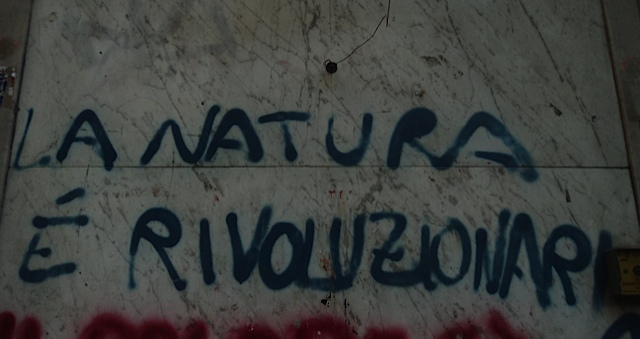 LA NATURA
É RIVOLUZIONARI